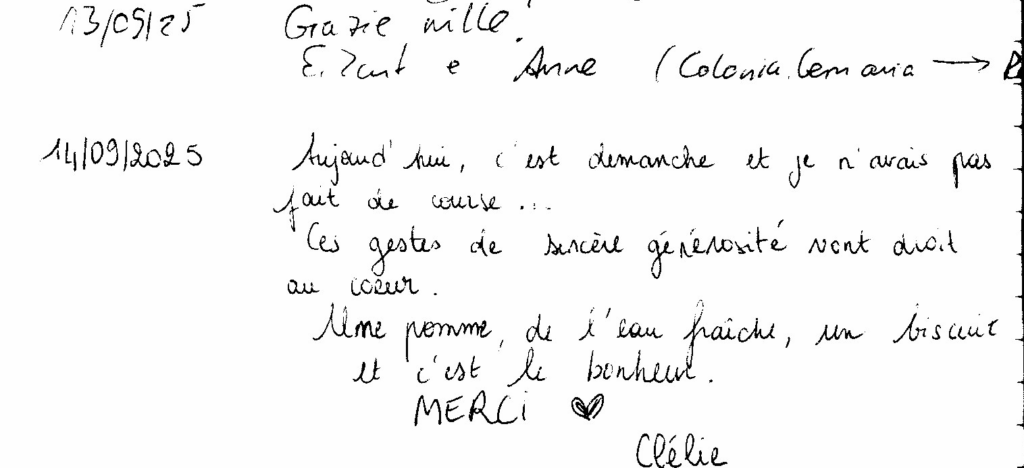 13/09/25 Grazie mille!
e Anne (Colonia. Germania →
14/09/2025 Aujourd'hui, c'est dimanche et je n'avais pas
fait de course ...
Ces gestes de sincère générosité vont droit
au coeur.
Une pomme, de l'eau fraîche, un biscuit
et c'est le bonheur.
MERCI ♥
Clélie